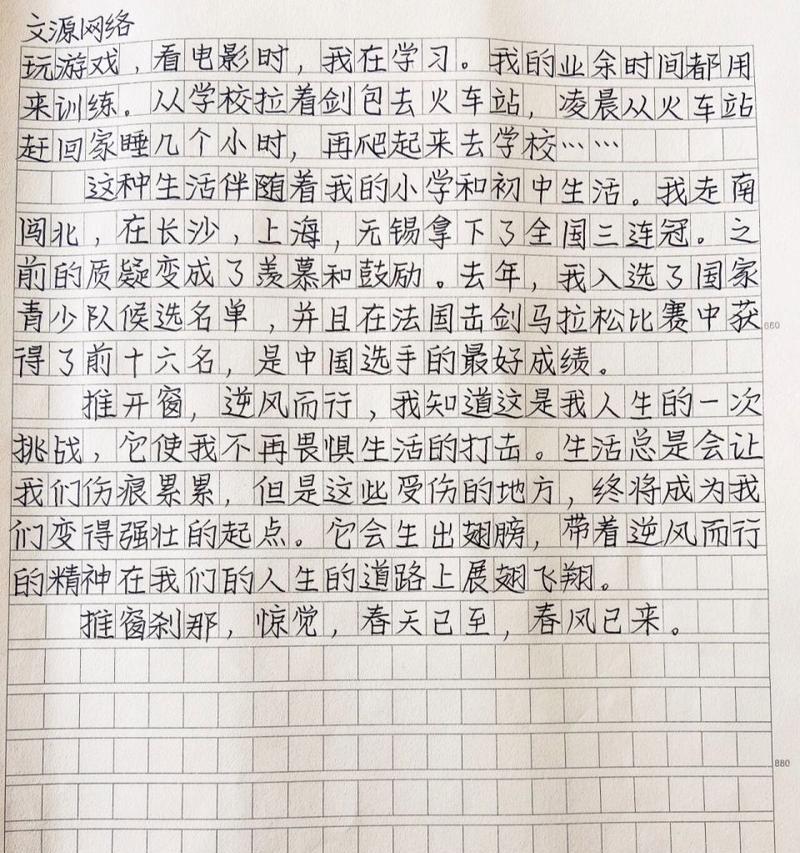 文源网络
玩游戏，看电影时，我在学习。我的业余时间都用
来训练。从学校拉着剑包去火车站，凌晨从火车站
赶回家睡几个小时，再爬起来去学校……
这种生活伴随着我的小学和初中生活。我走南
闯北，在长沙，上海，无锡拿下了全国三连冠。之
前的质疑变成了羡慕和鼓励。去年，我入选了国家
青少队候选名单，并且在法国击剑马拉松比赛中获
660
得了前十六名，是中国选手的最好成绩。
推开窗，逆风而行，我知道这是我人生的一次
挑战，它使我不再畏惧生活的打击。生活总是会让
我们伤痕累累，但是这些受伤的地方，终将成为我
们变得强壮的起点。它会生出翅膀，带着逆风而行
的精神在我们的人生的道路上展翅飞翔。
推窗刹那，惊觉，春天已至，春风已来。
880